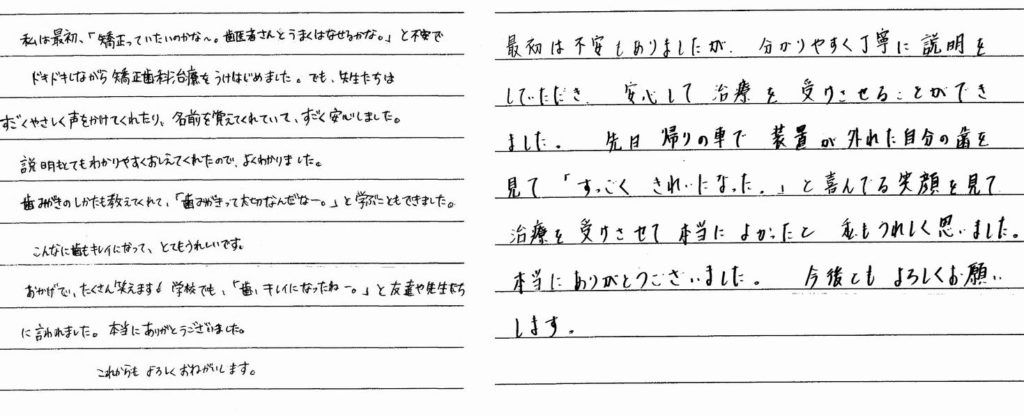 私は最初、「矯正っていたいのかな〜。歯医者さんとうまくはなせるかな。」と不安で
ドキドキしながら矯正歯科治療をうけはじめました。でも、先生たちは
すごくやさしく声をかけてくれたり、名前を覚えてくれていて、すごく安心しました。
説明もとてもわかりやすくおしえてくれたので、よくわかりました。
歯みがきのしかたも教えてくれて、「歯みがきって大切なんだなー。」と学ぶこともできました。
こんなに歯もキレイになって、とてもうれしいです。
おかげで、たくさん笑えます! 学校でも、「歯、キレイになったねー。」と友達や先生たち
に言われました。本当にありがとうございました。
これからも よろしくおねがいします。
最初は不安もありましたが、分かりやすく丁寧に説明を
していただき、安心して治療を受けさせることができ
ました。先日 帰りの車で装置が外れた自分の歯を
見て「すっごく きれいになった。」と喜んでる笑顔を見て
治療を受けさせて本当によかったと 私もうれしく思いました。
本当にありがとうございました。今後ともよろしくお願い
します。